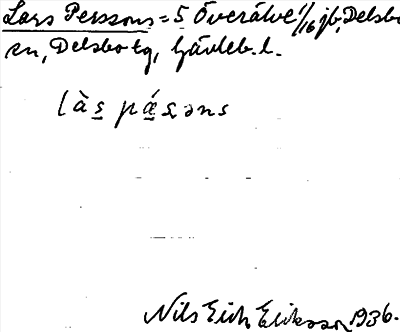 Lars Perssons = 5 Överälve 1/16 jb, Delsbo
sn, Delsbo tg, Gävleb. l.
làs pǽsəns
Nils Erik Eriksson 1936.